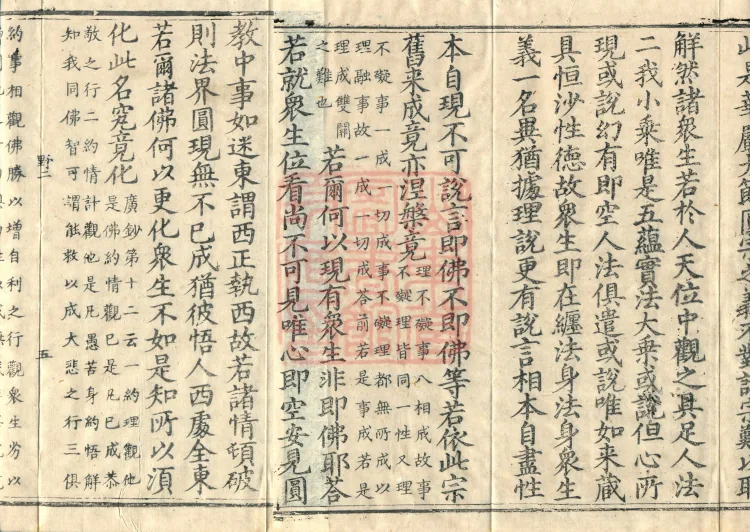 解然諸衆生若於人天位中觀之具足人法
二我小乗唯是五蘊實法大乗或說但心所
現或說幻有即空人法俱遣或說唯如来蔵
具恒沙性徳故衆生即在纒法身法身衆生
義一名異猶據理說更有說言相本自盡性
本自現不可說言即佛不即佛等若依此宗
舊来成竟亦涅槃竟
理不礙事八相成故事
不礙理皆同一性又理
不礙事一成一切成事不礙理都無所成以
理融事故一成一切成荅前若是事成若是
理成雙關
之難也
若爾何以現有衆生非即佛耶荅
若就衆生位看尚不可見唯心即空安見圓
教中事如迷東謂西正執西故若諸情頓破
則法界圓現無不已成猶彼悟人西處全東
若爾諸佛何以更化衆生不如是知所以湏
化此名究竟化
廣鈔第十二云一約理觀他
是佛約情觀已是凡已成恭
敬之行二約情計觀他是凡愚苦身約悟解
知我同佛智可謂能救以成大悲之行三俱
約事相觀佛勝以增自利之行觀衆生劣以
野二
五